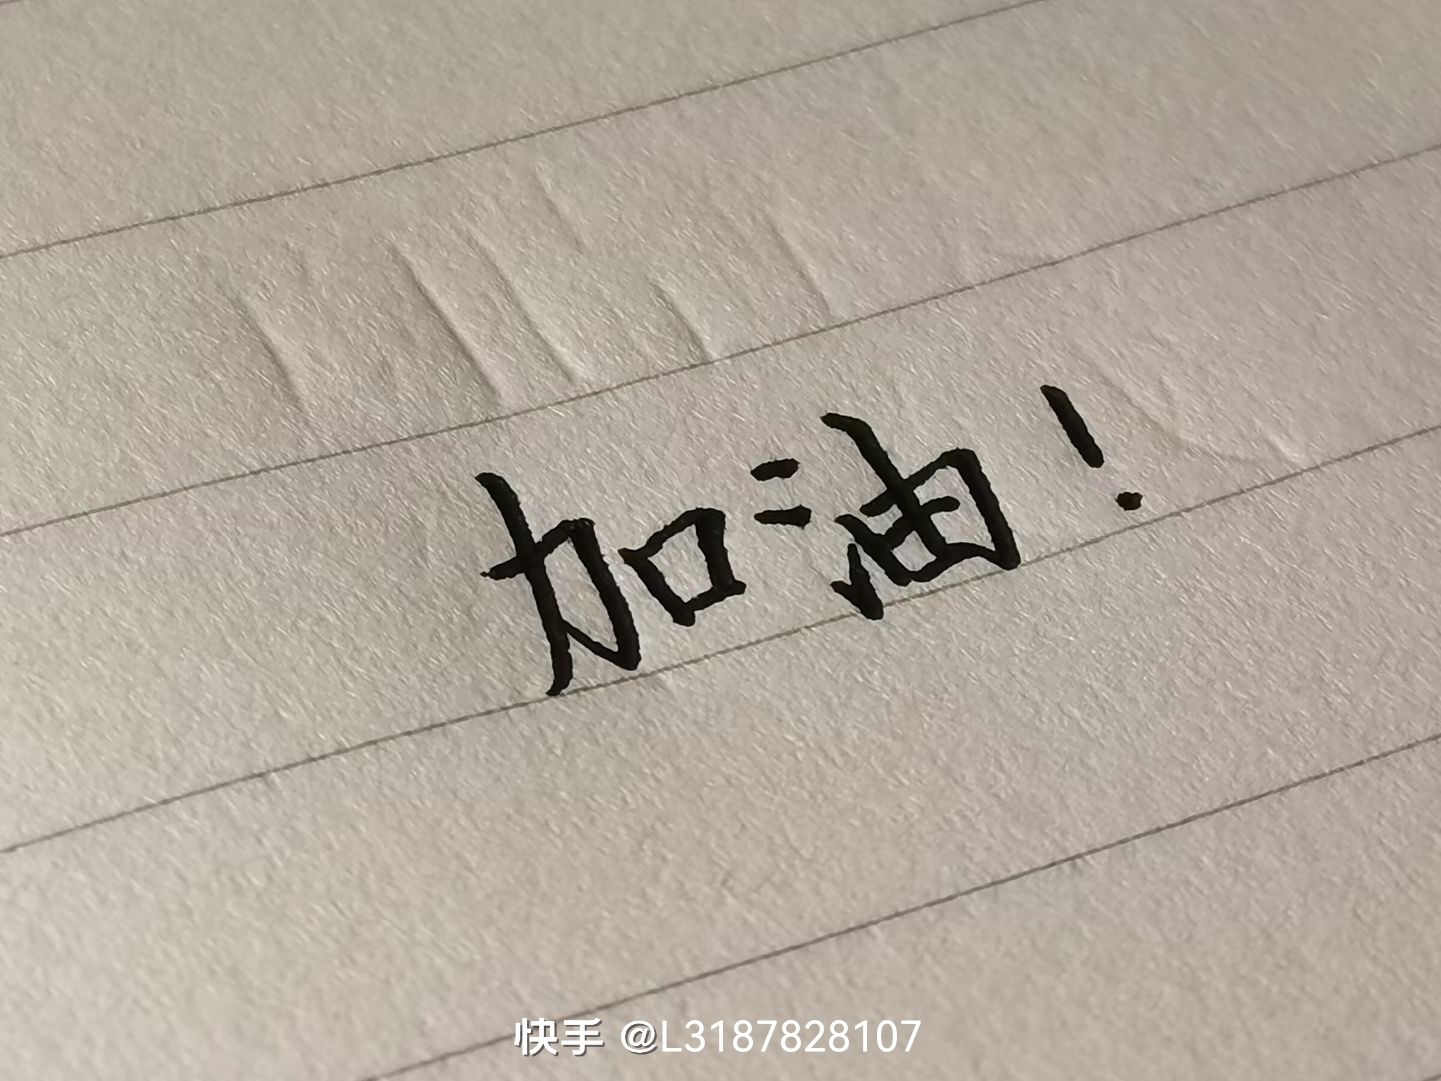 加油！
快手 @L3187828107